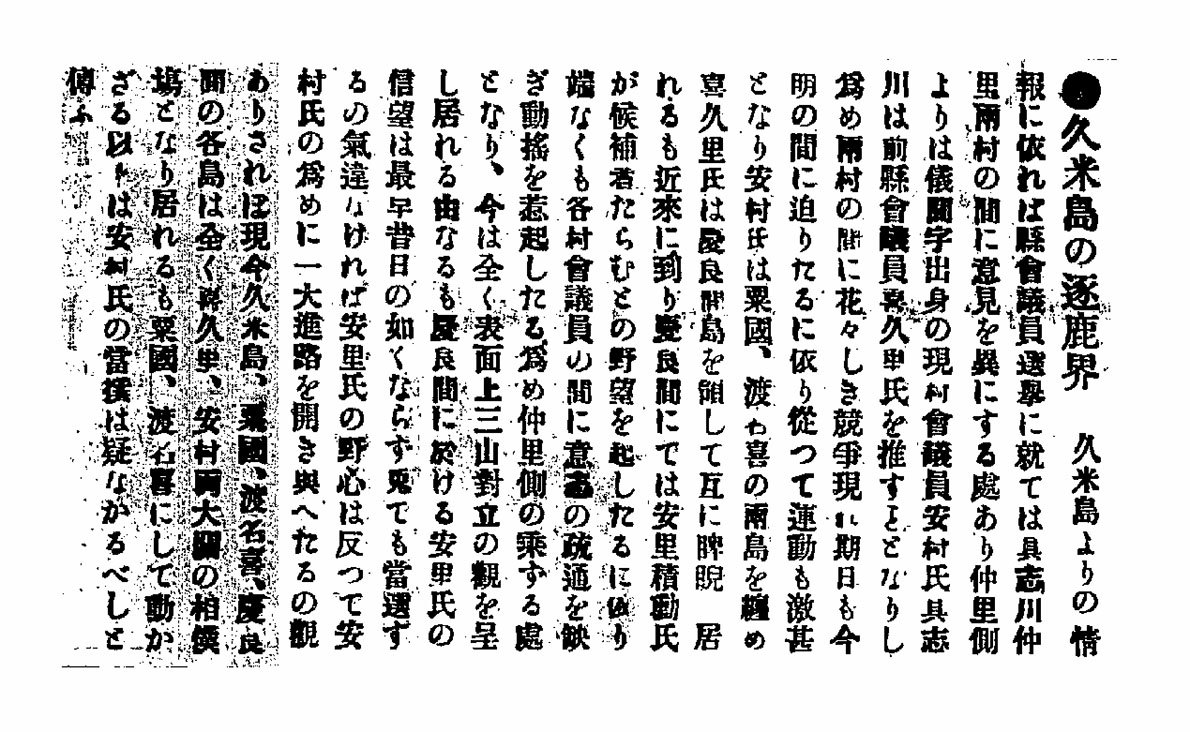 ●久米島の逐鹿界　久米島よりの情
報に依れば縣會議員選擧に就ては具志川仲
里兩村の間に意見を異にする處あり仲里側
よりは儀間字出身の現村會議員安村氏具志
川は前縣會議員喜久里氏を推すことなりし
爲め兩村の間に花々しき競爭現れ期日も今
明の間に迫りたるに依り從つて運動も激甚
となり安村氏は粟國、渡名喜の兩島を纏め
喜久里氏は慶良間島を領して互に睥睨　居
れるも近來に到り慶良間にては安里積勳氏
が候補者たらむとの野望を起したるに依り
端なくも各村會議員の間に意志の疏通を缺
ぎ動搖を惹起したる爲め仲里側の乘ずる處
となり、今は全く表面上三山對立の觀を呈
し居れる由なるも慶良間に於ける安里氏の
信望は最早昔日の如くならず兎ても當選す
るの氣違なければ安里氏の野心は反つて安
村氏の爲めに一大進路を開き與へたるの觀
ありされば現今久米島、粟國、渡名喜、慶良
間の各島は全く喜久里、安村兩大關の相撲
場となり居れるも粟國、渡名喜にして動か
ざる以上は安村氏の當撰は疑なかるべしと
傳ふ